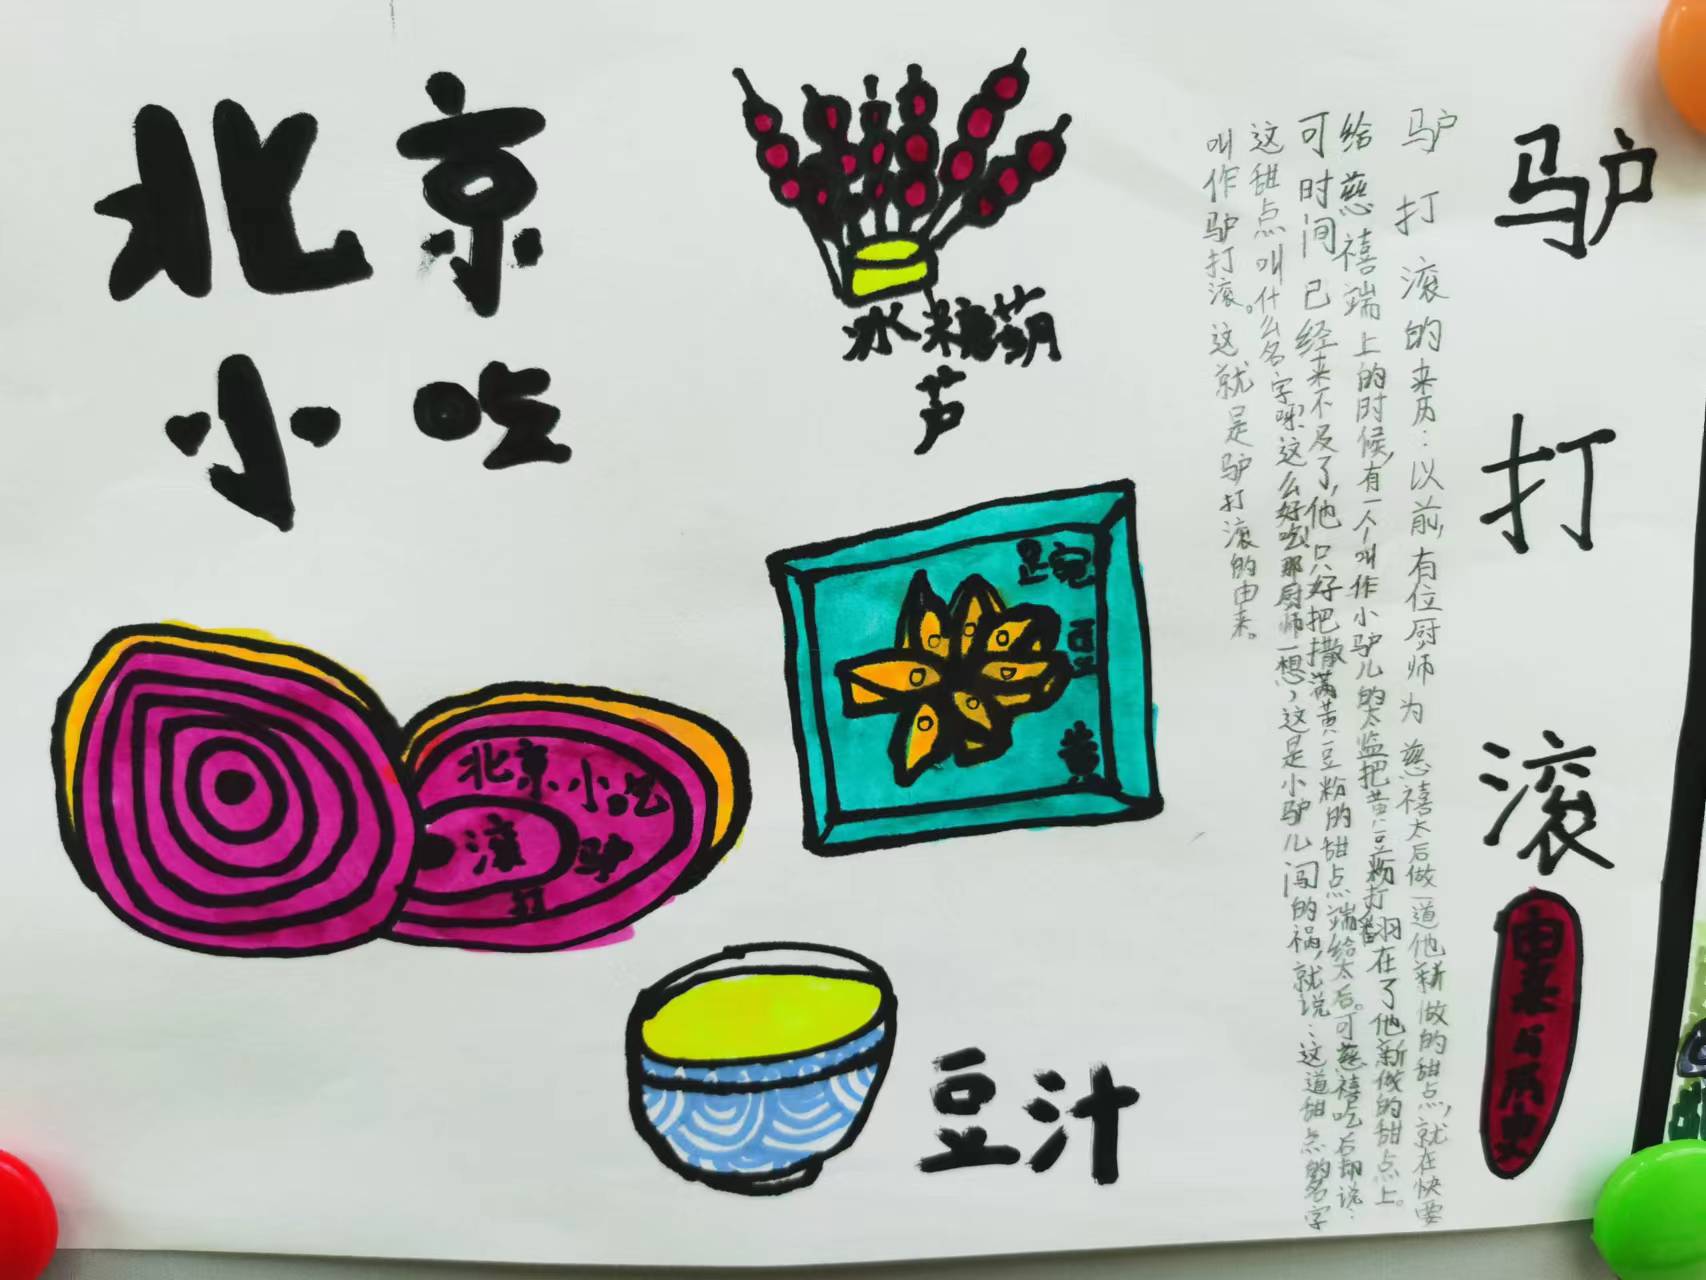 北京
小吃
冰糖葫
芦
豌
豆
黄
北京小吃
驴
打
滚
豆汁
驴打滚
由来与历史
驴打滚的来历:以前,有位厨师为慈禧太后做一道他新做的甜点,就在快要
给慈禧端上的时候,有一个叫作小驴儿的太监把黄豆粉打翻在了他新做的甜点上。
可时间已经来不及了,他只好把撒满黄豆粉的甜点端给太后。可慈禧吃后却说:
这甜点叫什么名字呀?这么好吃!那厨师一想,这是小驴儿闯的祸,就说:这道甜点的名字
叫作驴打滚。这就是驴打滚的由来。